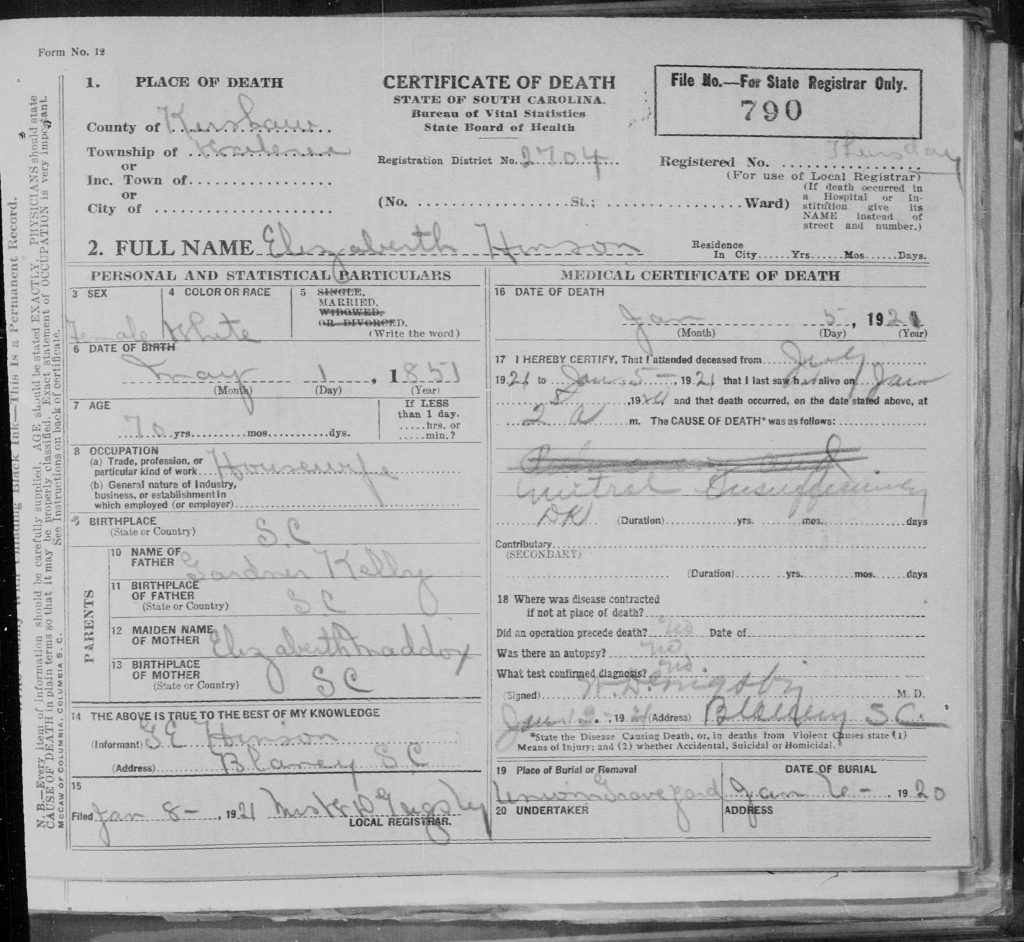 Form No. 12
1. PLACE OF DEATH
County of Kershaw
Township of
or
Inc. Town of
or
City of
CERTIFICATE OF DEATH
STATE OF SOUTH CAROLINA.
Bureau of Vital Statistics
State Board of Health
Registration District No. 2704
(No. St.; Ward)
File No.—For State Registrar Only.
790
Registered No. Thursday
(For use of Local Registrar)
(If death occurred in
a Hospital or In-
stitution give its
NAME instead of
street and number.)
2. FULL NAME Elizaberth Hinson
Residence
In City Yrs. Mos. Days.
PERSONAL AND STATISTICAL PARTICULARS
3 SEX
Female
4 COLOR OR RACE
White
5 SINGLE,
MARRIED,
WIDOWED,
OR DIVORCED.
(Write the word)
6 DATE OF BIRTH
May 1, 1851
(Month) (Day) (Year)
7 AGE
70 yrs. mos. dys.
If LESS
than 1 day.
hrs. or
min.?
8 OCCUPATION
(a) Trade, profession, or
particular kind of work Housewife
(b) General nature of Industry,
business, or establishment in
which employed (or employer)
9 BIRTHPLACE
(State or Country) S.C
PARENTS
10 NAME OF
FATHER Gardner Kelly
11 BIRTHPLACE
OF FATHER
(State or Country) SC
12 MAIDEN NAME
OF MOTHER Elizaberth Maddox
13 BIRTHPLACE
OF MOTHER
(State or Country) SC
14 THE ABOVE IS TRUE TO THE BEST OF MY KNOWLEDGE
(Informant) G.E Hinson
(Address) Blaney SC
15
Filed Jan 8-, 1921 Mrs W D Grigsby
LOCAL REGISTRAR.
MEDICAL CERTIFICATE OF DEATH
16 DATE OF DEATH
Jan 5, 1921
(Month) (Day) (Year)
17 I HEREBY CERTIFY, That I attended deceased from
1921 to Jan 5-, 1921 that I last saw h alive on Jan
, 19 and that death occurred, on the date stated above, at
2 a m. The CAUSE OF DEATH* was as follows:
Mitral Insufficiency
DK (Duration) yrs. mos. days
Contributory
(SECONDARY)
(Duration) yrs. mos. days
18 Where was disease contracted
if not at place of death?
Did an operation precede death? No Date of
Was there an autopsy? No
What test confirmed diagnosis? No
(Signed) W.D. Grigsby M. D.
Jan 19 (Address) Blaney S.C.
*State the Disease Causing Death, or, in deaths from Violent Causes state (1)
Means of Injury; and (2) whether Accidental, Suicidal or Homicidal.
19 Place of Burial or Removal
Union Graveyard
DATE OF BURIAL
Jan 6-, 1920
20 UNDERTAKER
ADDRESS
This is a Permanent Record.
N. B.—Every item of information should be carefully supplied. AGE should be stated EXACTLY. PHYSICIANS should state
CAUSE OF DEATH in plain terms so that it may be properly classified. Exact statement of OCCUPATION is very important.
See Instructions on back of certificate.
McCAW OF COLUMBIA, COLUMBIA S. C.